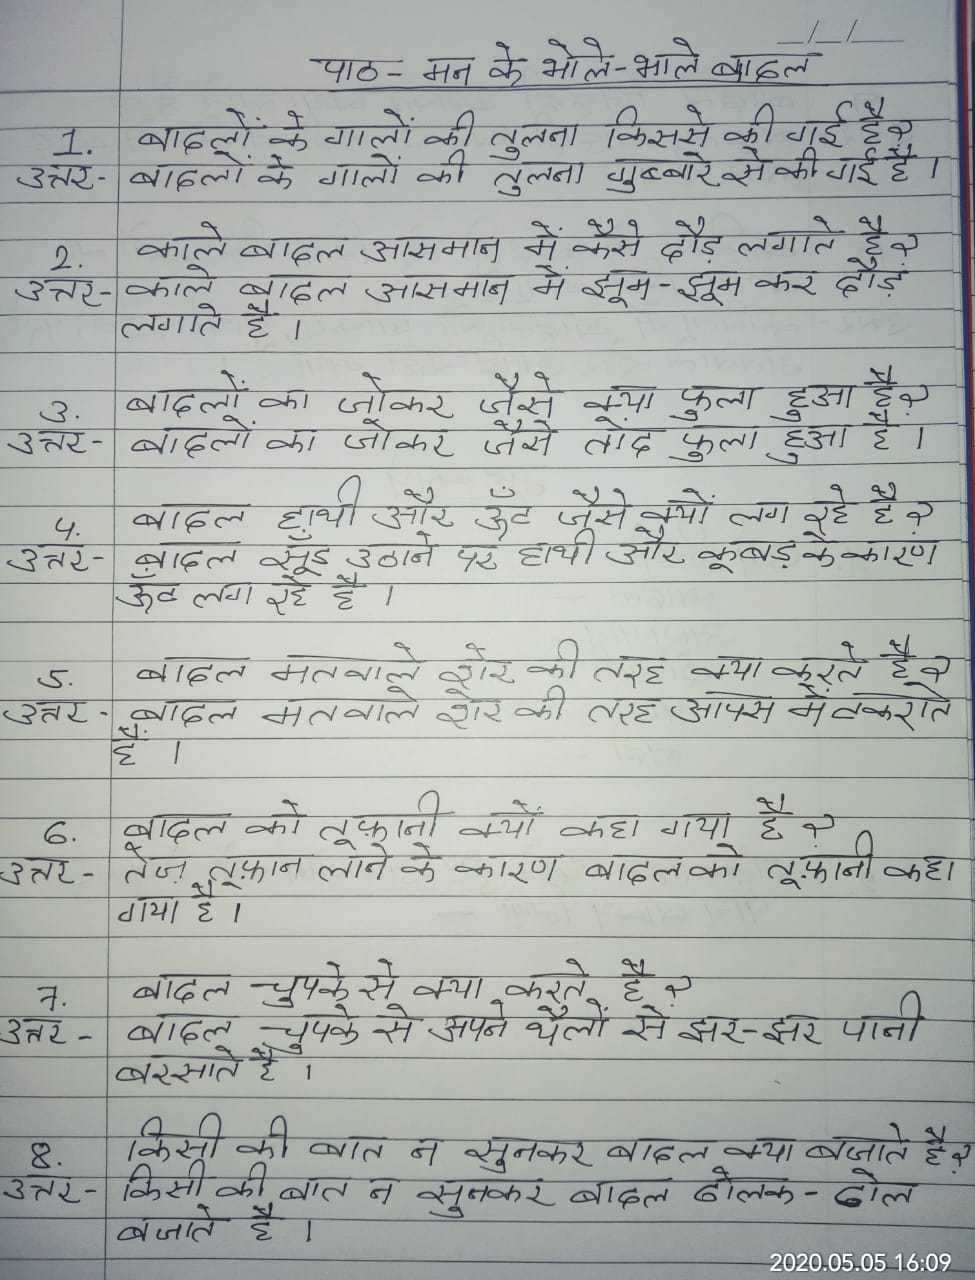 _/_/_
पाठ - मन के भोले-भाले बादल
1. बादलों के गालों की तुलना किससे की गई है?
उत्तर- बादलों के गालों की तुलना गुब्बारे से की गई है।
2. काले बादल आसमान में कैसे दौड़ लगाते हैं?
उत्तर- काले बादल आसमान में झूम-झूम कर दौड़
लगाते हैं।
3. बादलों का जोकर जैसे क्या फुला हुआ है?
उत्तर- बादलों का जोकर जैसे तोंद फुला हुआ है।
4. बादल हाथी और ऊँट जैसे क्यों लग रहे हैं?
उत्तर- बादल सूँड उठाने पर हाथी और कूबड़ के कारण
ऊँट लग रहे हैं।
5. बादल मतवाले शेर की तरह क्या करते हैं?
उत्तर- बादल मतवाले शेर की तरह आपस में टकराते
हैं।
6. बादल को तूफ़ानी क्यों कहा गया है?
उत्तर- तेज़ तूफ़ान लाने के कारण बादल को तूफ़ानी कहा
गया है।
7. बादल चुपके से क्या करते हैं?
उत्तर- बादल चुपके से अपने थैलों से झर-झर पानी
बरसाते हैं।
8. किसी की बात न सुनकर बादल क्या बजाते हैं?
उत्तर- किसी की बात न सुनकर बादल ढोलक-ढोल
बजाते हैं।
2020.05.05 16:09